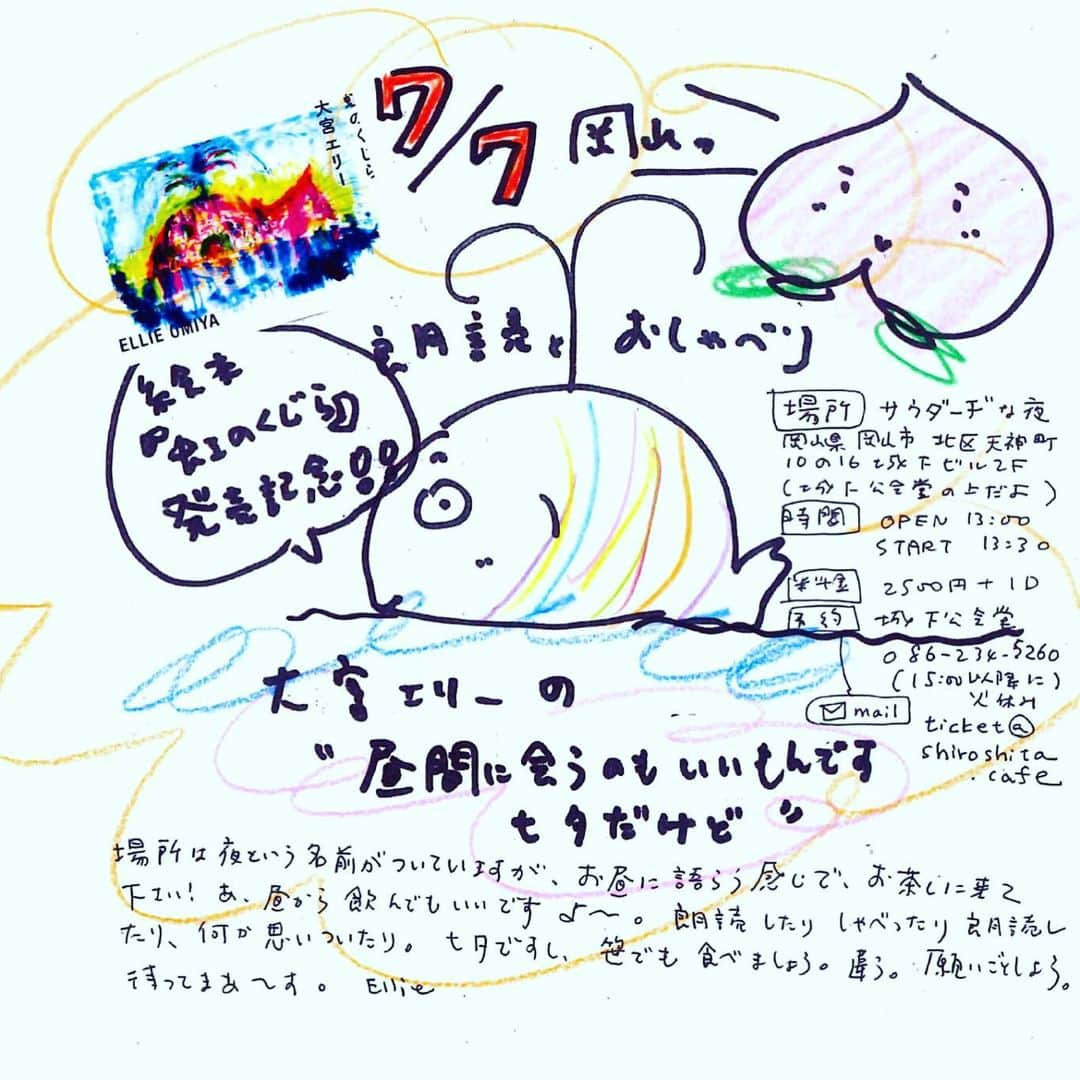 7/7 岡山っ
虹のくじら
大宮エリー
ELLIE OMIYA
朗読とおしゃべり
絵本
『虹のくじら』
発売記念!!
場所 サウダーヂな夜
岡山県岡山市 北区天神町
10の16 城下ビル2F
(城下公会堂の上だよ)
時間 OPEN 13:00
START 13:30
料金 2500円+1D
予約 城下公会堂
086-234-5260
(15:00以降に)
火休み
mail
ticket@
shiroshita
.cafe
大宮エリーの
"昼間に会うのもいいもんです
七夕だけど"
場所は夜という名前がついていますが、お昼に語らう感じで、お茶しに来て
下さい!あ、昼から飲んでもいいですよ〜。朗読したりしゃべったり朗読し
たり、何か思いついたり。七夕ですし、笹でも食べましょう。違う。願いごとしよう。
待ってまあ〜す。 Ellie